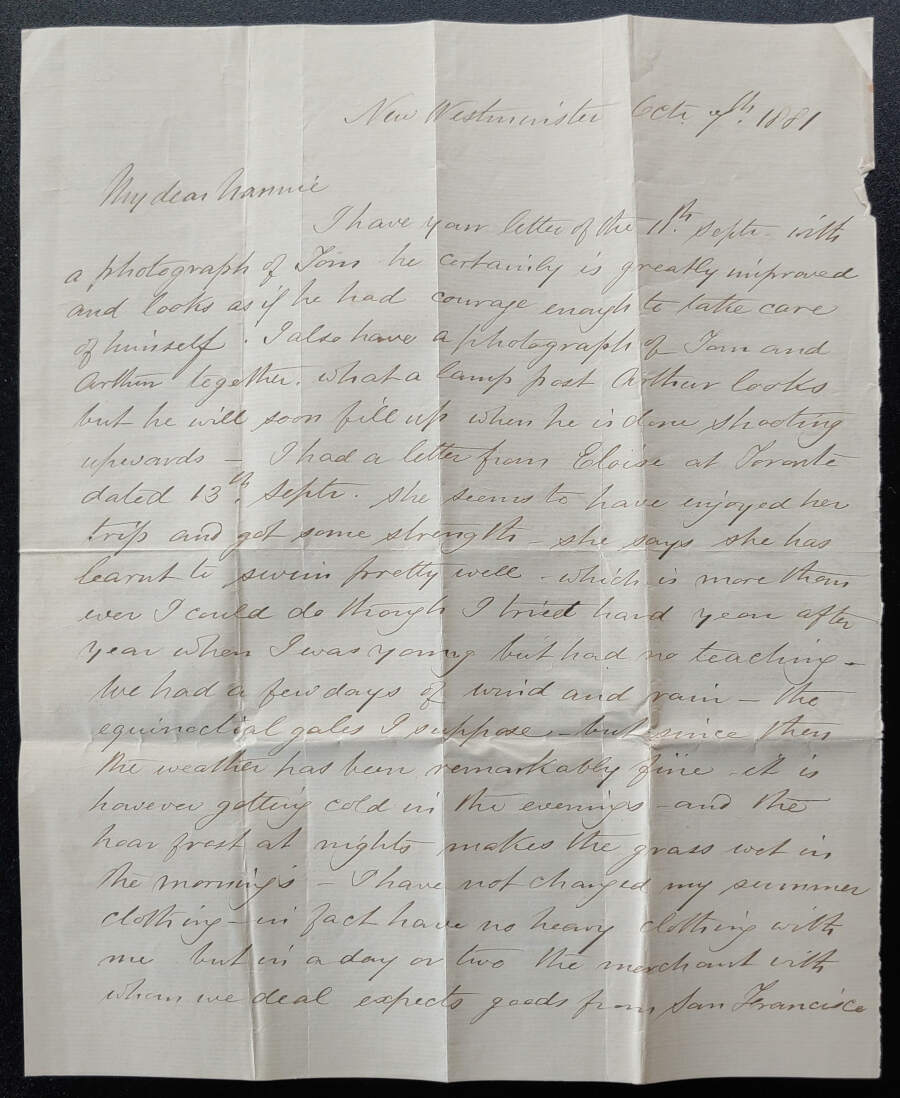 New Westminster Octr. 7th. 1881
My dear Nannie
I have your letter of the 11th. Septr. with
a photograph of Tom he certainly is greatly improved
and looks as if he had courage enough to take care
of himself. I also have a photograph of Tom and
Arthur together. what a lamp post Arthur looks
but he will soon fill up when he is done shooting
upwards — I had a letter from Eloise at Toronto
dated 13th. Septr. she seems to have enjoyed her
trip and got some strength — she says she has
learnt to swim pretty well — which is more than
ever I could do though I tried hard year after
year when I was young but had no teaching —
We had a few days of wind and rain — the
equinoctial gales I suppose — but since then
the weather has been remarkably fine — it is
however getting cold in the evenings — and the
hoar frost at nights makes the grass wet in
the mornings — I have not changed my summer
clothing — in fact have no heavy clothing with
me but in a day or two the merchant with
whom we deal expects goods from San Francisco